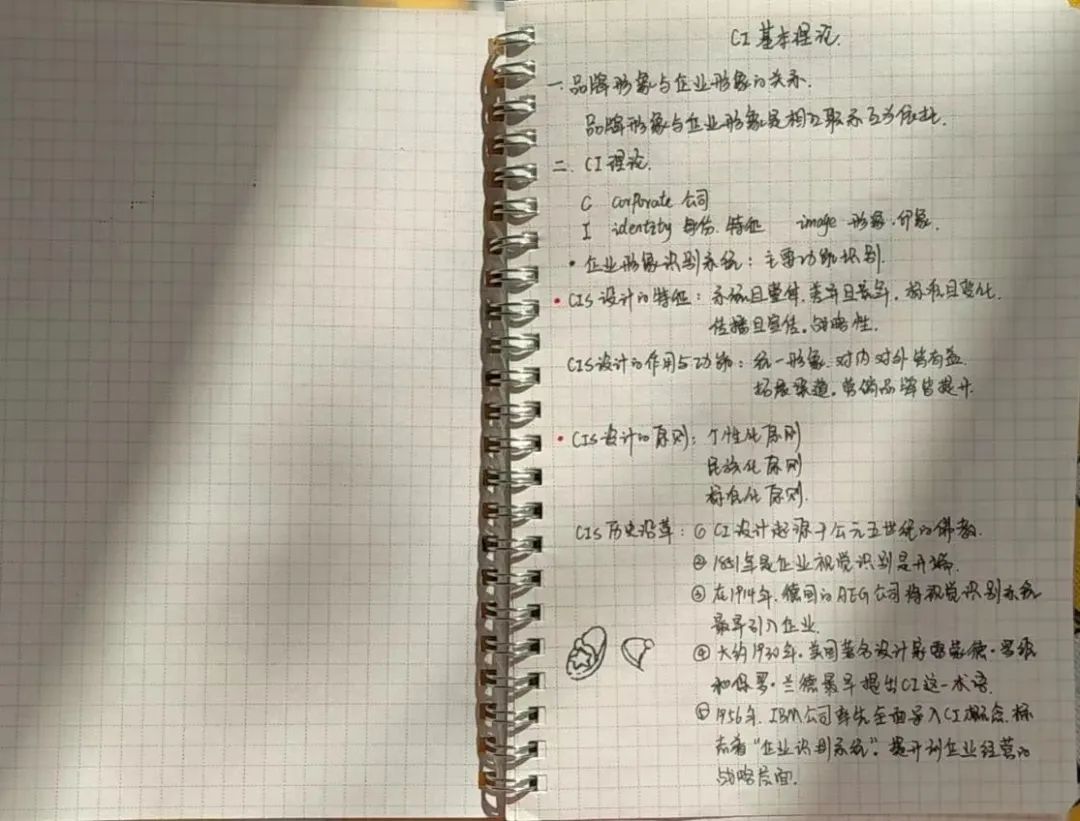 CI 基本理论.
一.品牌形象与企业形象的关系.
品牌形象与企业形象是相互联系互为依托.
二. CI 理论.
C corporate 公司
I identity 身份.特征 image 形象.印象.
• 企业形象识别系统：主要功能识别.
• CIS 设计的特征：系统且整体.差异且竞争.标准且变化.
传播且宣传.战略性.
CIS设计的作用与功能：统一形象.对内对外皆有益.
拓展渠道.营销品牌皆提升.
• CIS设计的原则：个性化原则
民族化原则
标准化原则.
CIS 历史沿革：① CI 设计起源于公元五世纪的佛教.
② 1851年是企业视觉识别是开端.
③ 在1914年.德国的AEG公司将视觉识别系统
最早引入企业.
④ 大约1930年.美国著名设计家雷蒙德·罗维
和保罗·兰德最早提出CI这一术语.
⑤ 1956年.IBM公司率先全面导入CI概念.标
志着“企业识别系统”.提升到企业经营的
战略层面.